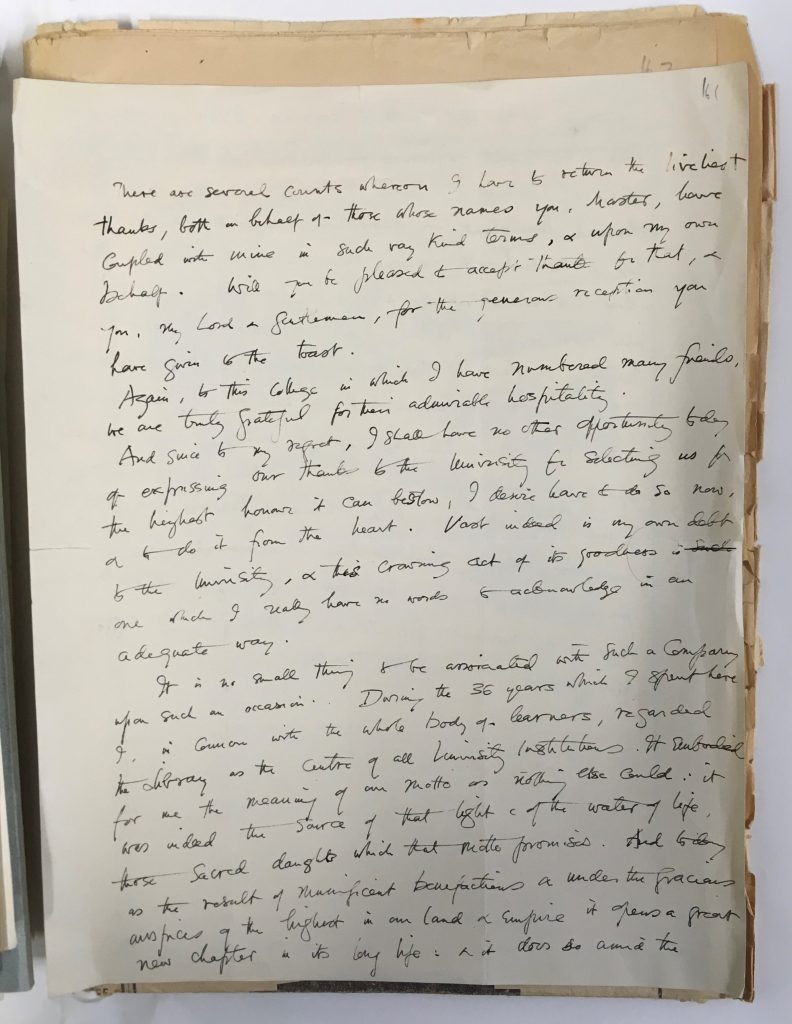 161
There are several counts whereon I have to return the liveliest
thanks, both on behalf of those whose names you, Master, have
coupled with mine in such very kind terms, & upon my own
behalf. Will you be pleased to accept thanks for that, &
you, my Lord & Gentlemen, for the generous reception you
have given to the toast.
Again, to this College in which I have numbered many friends,
we are truly grateful for their admirable hospitality.
And since to my regret, I shall have no other opportunity today
of expressing our thanks to the University for selecting us for
the highest honour it can bestow, I desire have to do so now,
& to do it from the heart. Vast indeed is my own debt
to the University, & this crowning act of its goodness is such
one which I really have no words to acknowledge in an
adequate way.
It is no small thing to be associated with such a Company
upon such an occasion. During the 36 years which I spent here
I, in common with the whole body of learners, regarded
the Library as the centre of all University Institutions. It embodied
for me the meaning of our motto as nothing else could: it
was indeed the source of that light & of the water of life,
those sacred draughts which that motto promises. And today
as the result of munificent benefactions & under the gracious
auspices of the highest in our land & Empire it opens a great
new chapter in its long life: & it does so amid the